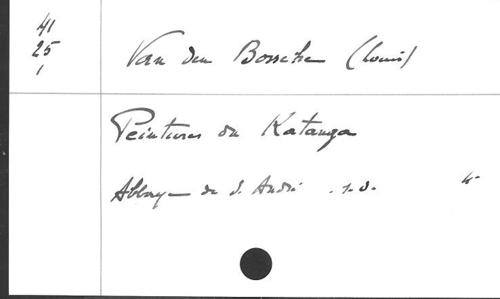 41
25
1
Van den Bossche (Louis)
Peintures du Katanga
Abbaye de S. André . s.d.